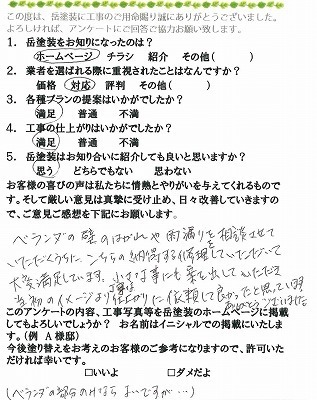 この度は、岳塗装に工事のご用命賜り誠にありがとうございました。
よろしければ、アンケートにご回答ご協力お願い致します。
1. 岳塗装をお知りになったのは？
ホームページ　チラシ　紹介　その他（　　　　）
2. 業者を選ばれる際に重視されたことはなんですか？
価格　対応　評判　その他（　　　　）
3. 各種プランの提案はいかがでしたか？
満足　普通　不満
4. 工事の仕上がりはいかがでしたか？
満足　普通　不満
5. 岳塗装はお知り合いに紹介しても良いと思いますか？
思う　どちらでもない　思わない
お客様の喜びの声は私たちに情熱とやりがいを与えてくれるものです。
そして厳しい意見は真摯に受け止め、日々改善していきますので、ご意見ご感想を下記にお願いします。
ベランダの壁のはがれや雨漏りを相談させて
いただくうちに、こちらの納得する修理をしていただいて
大変満足しています。小さな事にも
当初のイメージより丁寧な仕上がりに依頼して良かったと思っています
ありがとうございました
このアンケートの内容、工事写真等を岳塗装のホームページに掲載
してもよろしいでしょうか？　お名前はイニシャルでの掲載にいたし
ます。（例　A 様邸）
今後塗り替えをお考えのお客様のご参考になりますので、許可いた
だければ幸いです。
□いいよ　□ダメだよ
（ベランダの部分のみなら よいですが…）